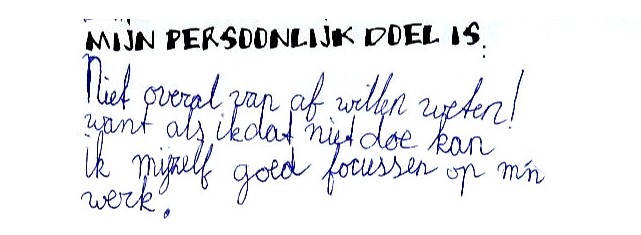 MIJN PERSOONLIJK DOEL IS:
Niet overal van af willen weten!
want als ik dat niet doe kan
ik mijzelf goed focussen op m'n
werk.